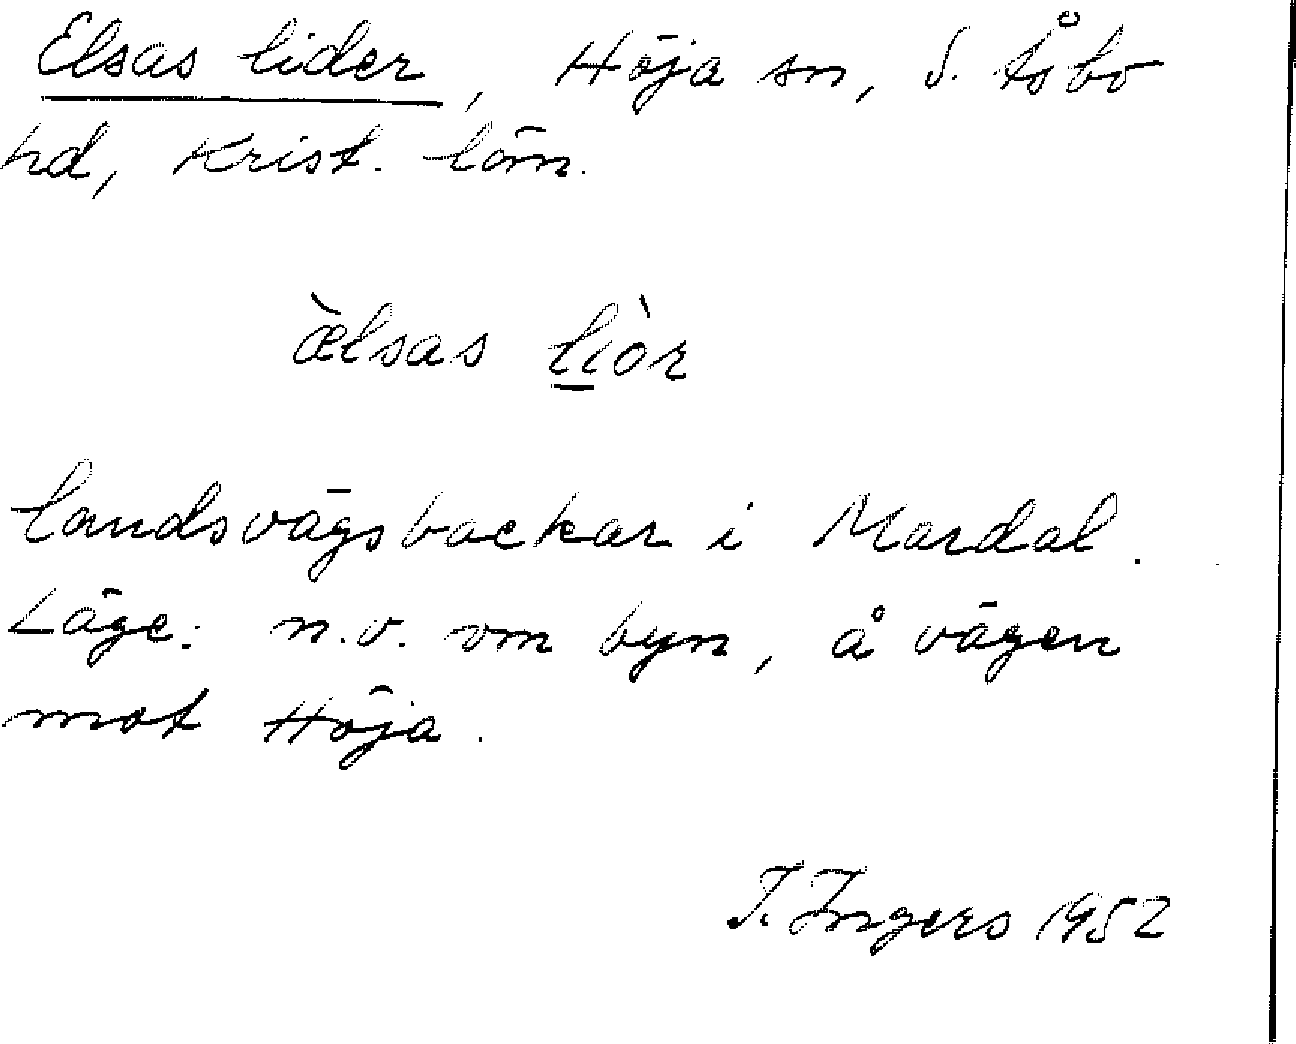 Elsas lider, Höja sn, S. Åsbo
hd, Krist. län.
æ̀lsas li̲òr
landsvägsbackar i Mardal.
Läge: n.v. om byn, å vägen
mot Höja.
I. Ingers 1952